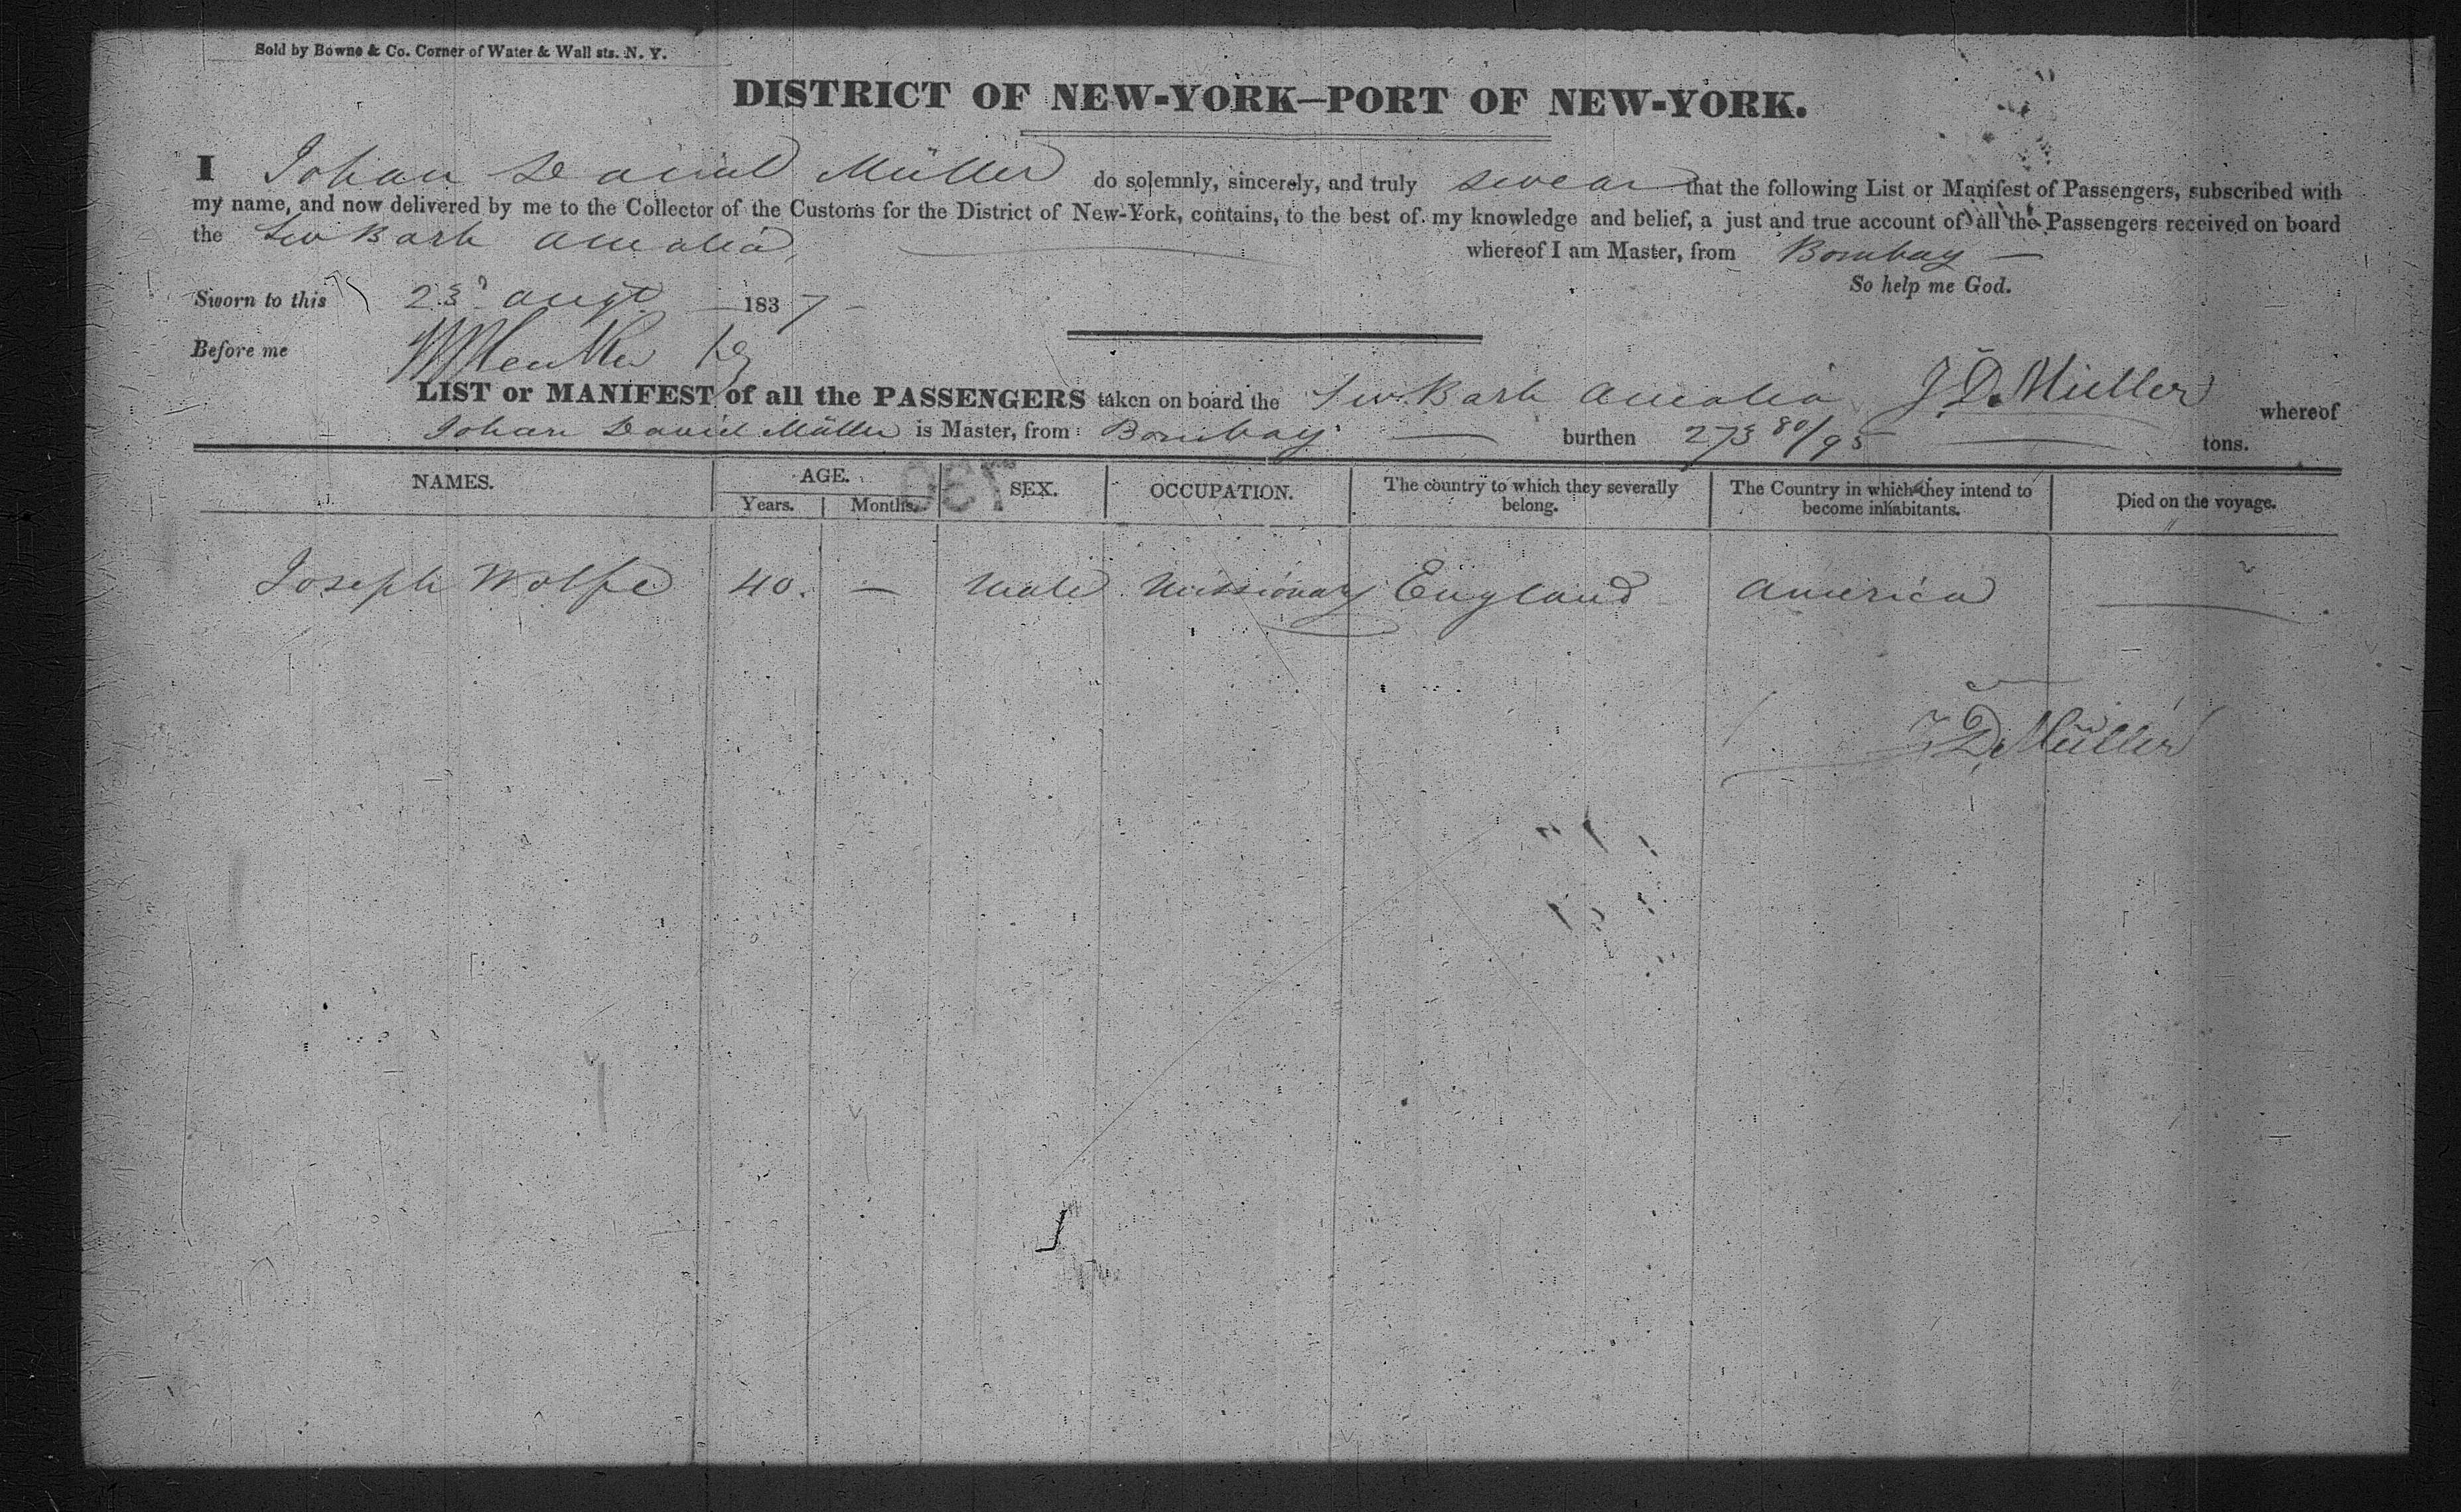 Sold by Bowne & Co. Corner of Water & Wall sts. N. Y.
DISTRICT OF NEW-YORK—PORT OF NEW-YORK.
I Johan David Müller do solemnly, sincerely, and truly swear that the following List or Manifest of Passengers, subscribed with
my name, and now delivered by me to the Collector of the Customs for the District of New-York, contains, to the best of my knowledge and belief, a just and true account of all the Passengers received on board
the Sw Bark Amalia, whereof I am Master, from Bombay —
So help me God.
Sworn to this 23d Augt 1837 –
Before me
LIST or MANIFEST of all the PASSENGERS taken on board the Sw. Bark Amalia J. D. Müller whereof
Johan David Müller is Master, from Bombay — burthen 273 80/95 — tons.
NAMES. AGE. SEX. OCCUPATION. The country to which they severally belong. The Country in which they intend to become inhabitants. Died on the voyage.
Years. Months.
Joseph Wolfe 40. — Male Missionary England America —
J D Müller